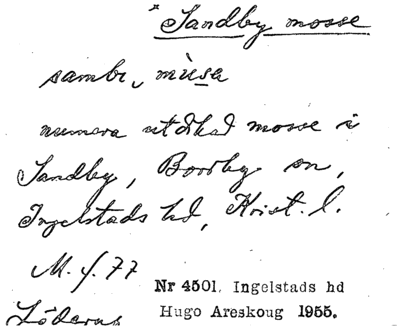 *Sandby mosse
numera utdikad mosse i
Sandby, Borrby sn,
Ingelstads hd, Krist. l.
M. f. 77
Nr 4501, Ingelstads hd
Löderup
Hugo Areskoug 1955.